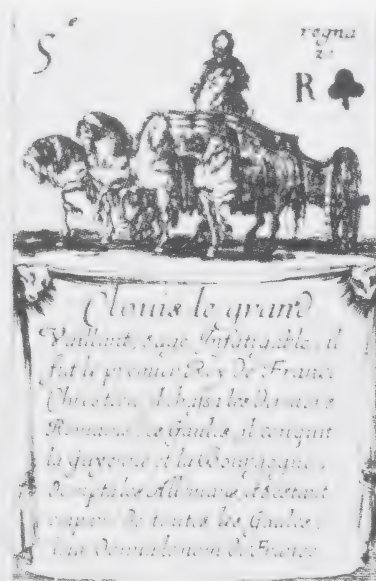 Sᵉ
regna
R
Clouis le grand
Vaillant, sage, Infatigable, il
fut le premier Roy de France
Chrestien, il chassa les derniers
Romains des Gaules, il conquit
la Guyenne et la Bourgogne,
dompta les Allemans, et s'estant
de toutes les Gaules,
leur donna le nom de France